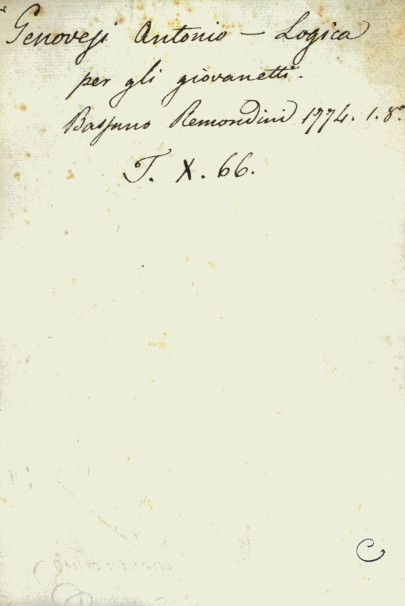 Genovesi Antonio - Logica
per gli giovanetti.
Bassano Remondini 1774. 1. 8.º
T. X. 66.
C